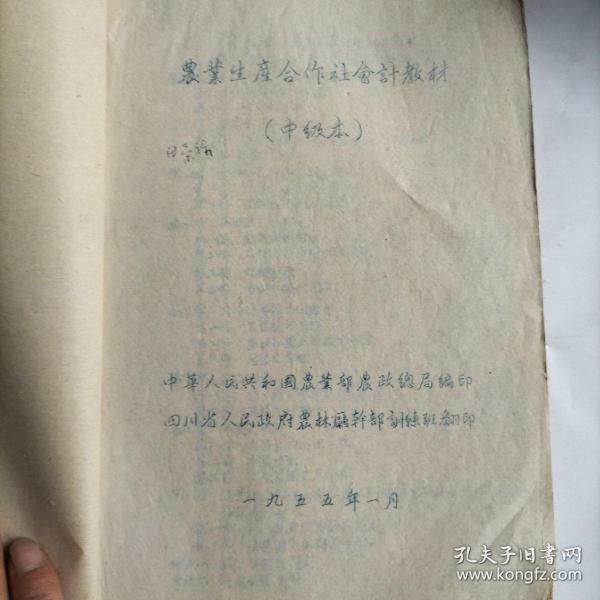 農業生產合作社會計教材
（中級本）
中華人民共和國農業部農政總局編印
四川省人民政府農林廳幹部訓練班翻印
一九五五年一月
孔夫子旧书网
www.kongfz.com